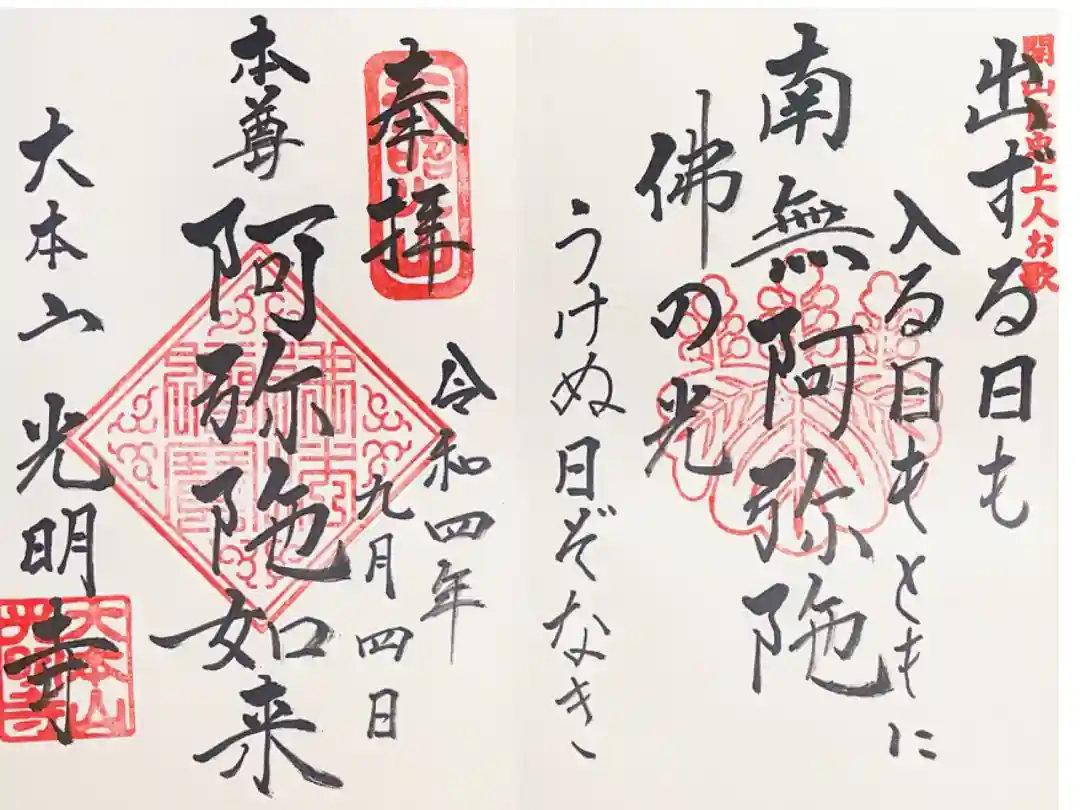 開山良忠上人お歌
出ずる日も
入る日もともに
南無阿弥陀
佛の光
うけぬ日ぞなき
奉拝
令和四年
九月四日
本尊 阿弥陀如来
大本山 光明寺
大本山光明寺